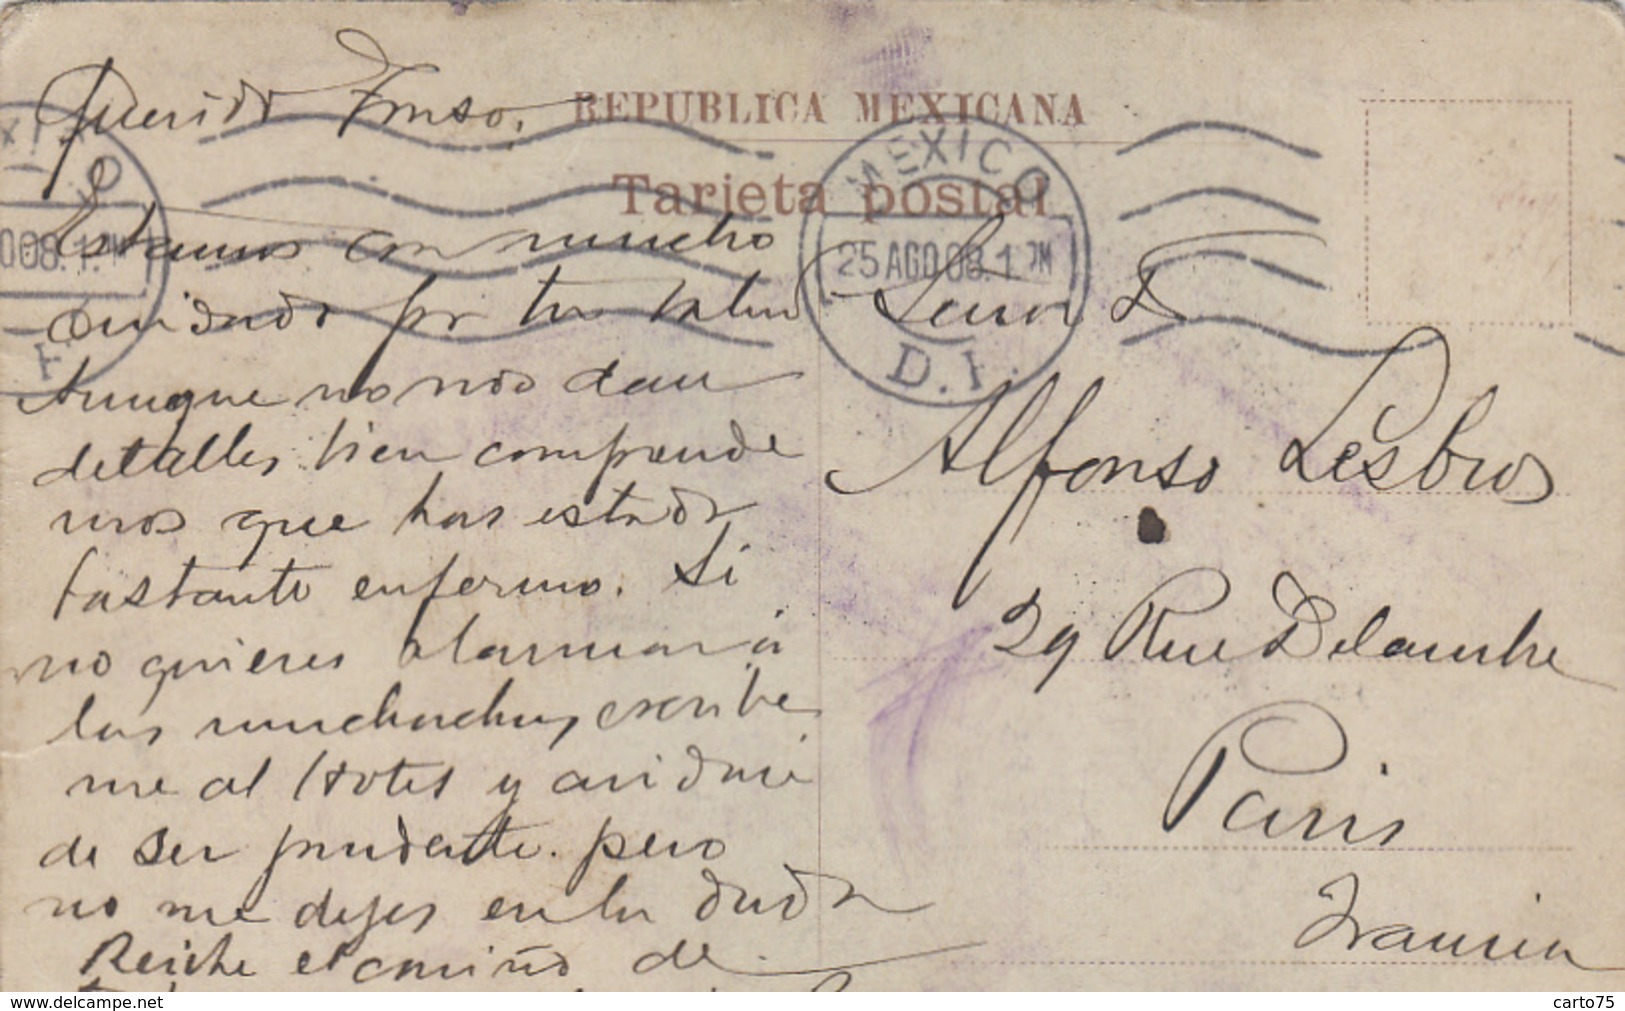 REPUBLICA MEXICANA
Tarjeta postal
MEXICO
25 AGO 08. 1 PM
D. F.
Querido Fonso.
Estamos con mucho
cuidado por tu salud
Aunque no nos dan
detalles, bien comprende
mos que has estado
bastante enfermo. Si
no quieres alarmar á
las muchachas, escribe
me al Hotel y cuidaré
de ser prudente. pero
no me dejes en la duda
Recibe el cariño de
Señor D.
Alfonso Lesbros
29 Rue Delambre
Paris
Francia
www.delcampe.net
carto75